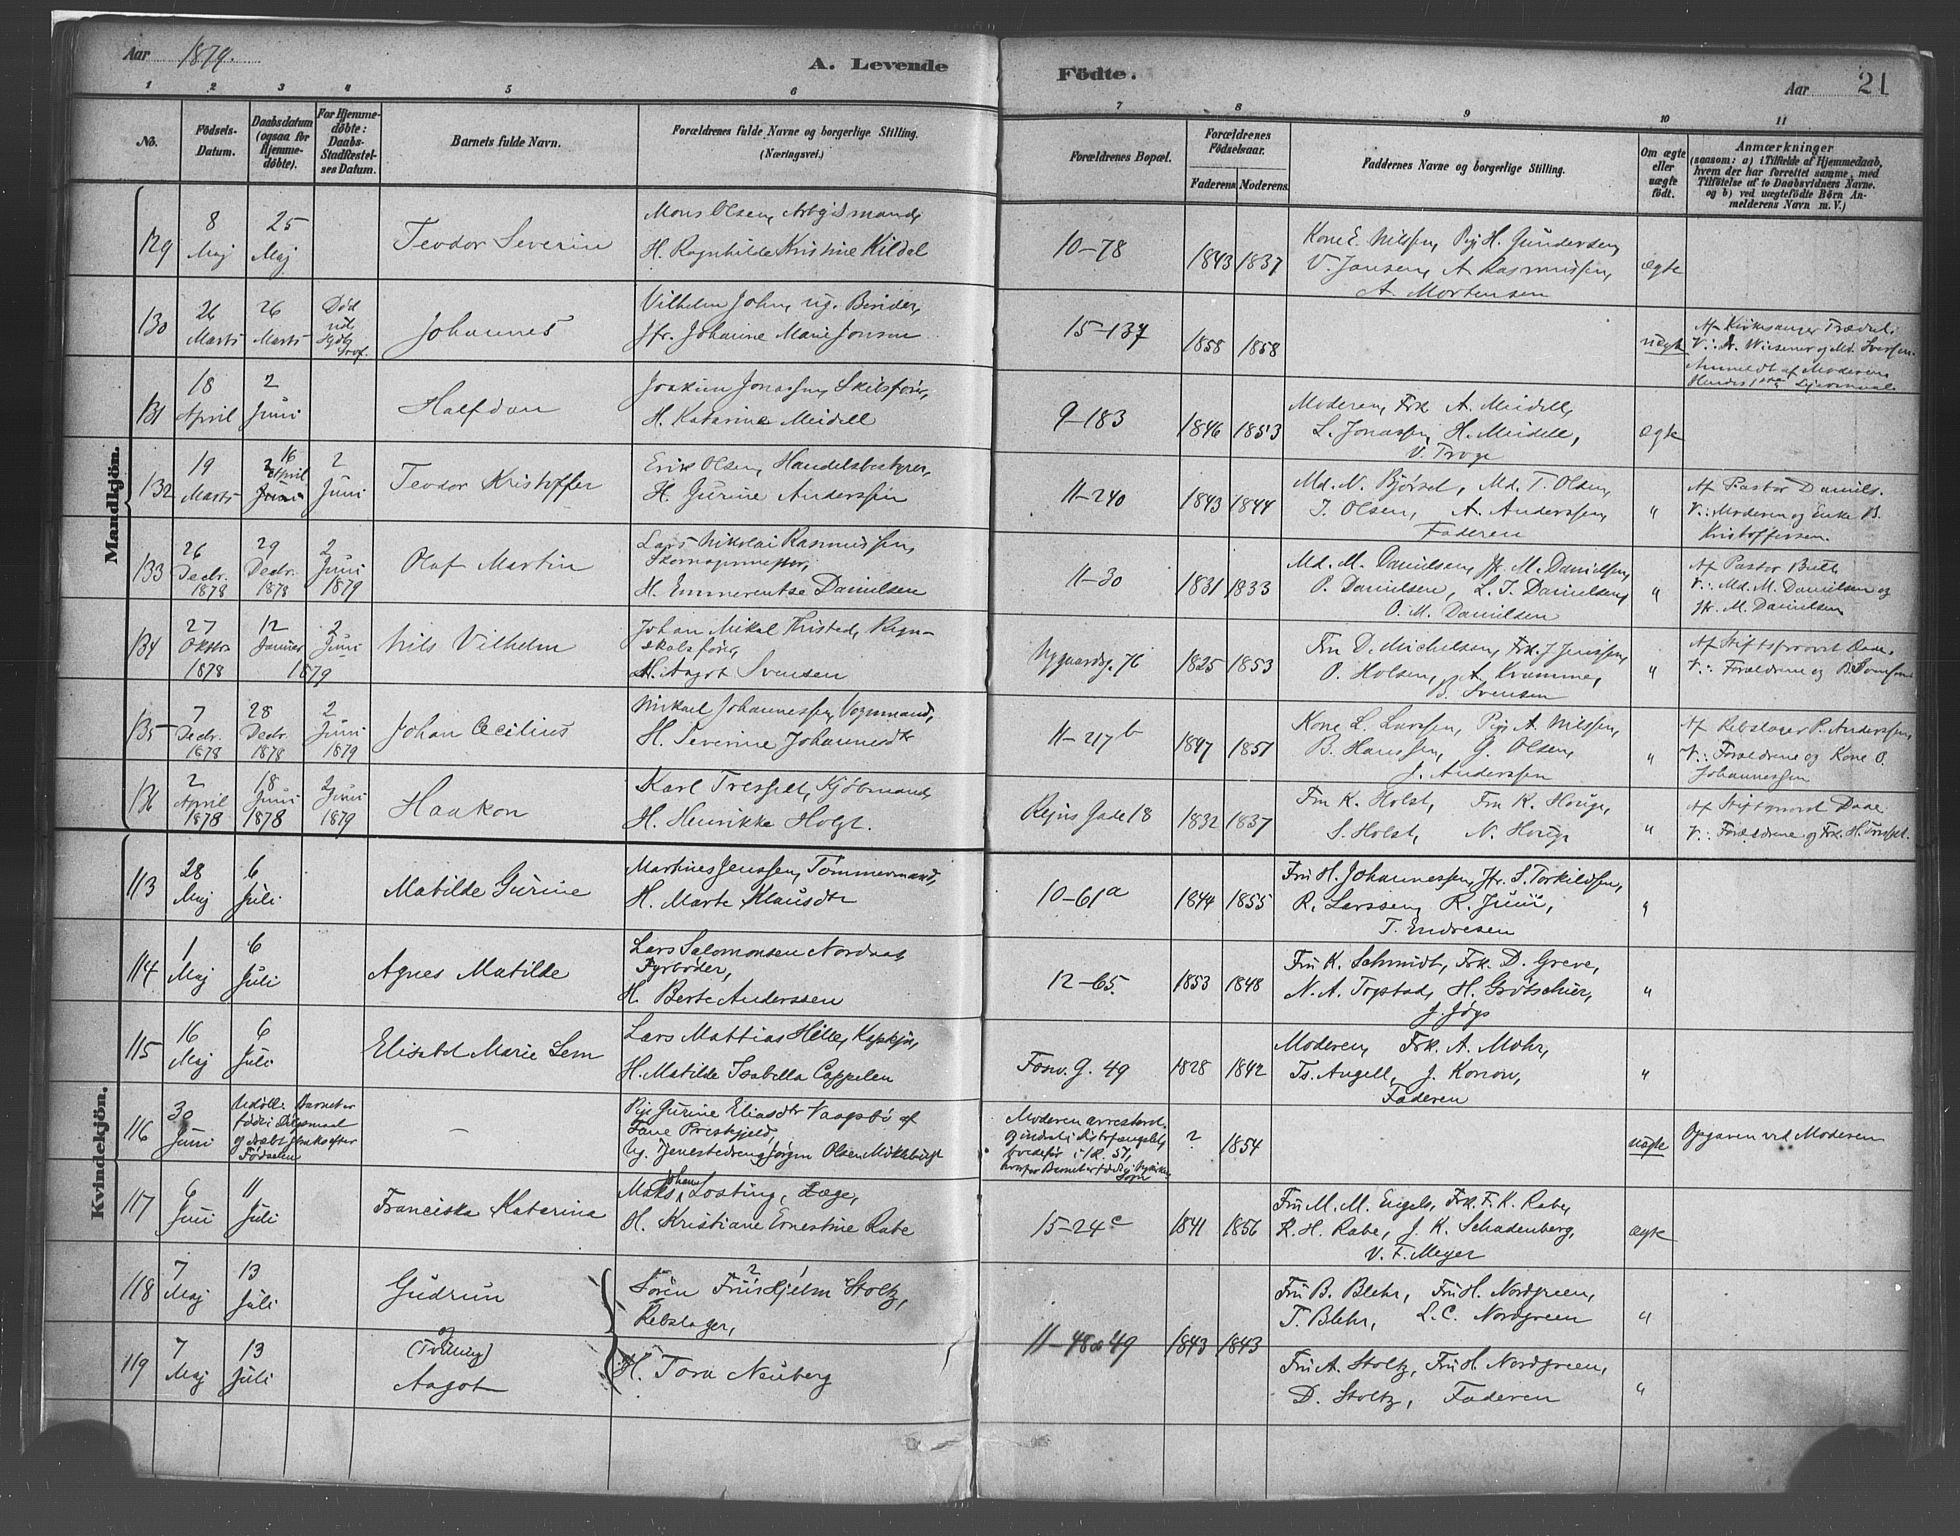 Aar 1879.
A. Levende Födte.
Aar 21
1 2 3 4 5 6 7 8 9 10 11
No.
Födsels-Datum.
Daabsdatum (ogsaa for Hjemme-döbte).
For Hjemme-döbte: Daabs-Stadfæstel-ses Datum.
Barnets fulde Navn.
Forældrenes fulde Navne og borgerlige Stilling.
(Næringsvei.)
Forældrenes Bopæl.
Forældrenes Födselsaar.
Faderens. Moderens.
Faddernes Navne og borgerlige Stilling.
Om ægte eller uægte födt.
Anmærkninger
(saasom: a) i Tilfælde af Hjemmedaab,
hvem der har forrettet samme, med
Tilföielse af to Daabsvidners Navne.
og b) ved uægtefödte Börn An-
melderens Navn m. V.)
Mandkjön.
129 8 Maj 25 Maj Teodor Severin
Mons Olsen, Arbejdsmand,
H. Ragnhilde Kristine Kildal
10-78 1843 1837
Kone E. Nilssen, Pig H. Gundersen,
V. Jansen, A. Rasmussen,
A. Mortensen
ægte
130 26 Marts 26 Marts Død Johannes
Vilhelm John, ug. Berider,
Jfr. Johanne Marie Jonsen
15-137 1858 1858
uægte
Af Kirkesanger
V: A. Wiesener og Md. Iversen.
Anmeldt af Moderen.
131 18 April 2 Juni Halfdan
Joakim Jonassen, Skibsfører,
H. Katarine Meidell
9-183 1846 1853
Moderen, Frk. A. Meidell,
L. Jonassen, H. Meidell,
ægte
132 19 Marts 16 April 2 Juni Teodor Kristoffer
Erik Olsen, Handelsbestyrer,
H. Gurine Anderssen
11-240 1843 1844
Md. N. Bjørset, Md. T. Olsen,
J. Olsen, A. Anderssen,
Faderen
"
Af Pastor Daniels.
V: Moderen og Enke B.
Kristoffersen.
133 26 Decbr. 1878 29 Decbr. 1878 2 Juni 1879 Olaf Martin
Lars Nikolai Rasmussen,
H. Emmerentse Danielsen
11-30 1831 1833
Md. M. Danielsen, Jfr. M. Danielsen,
P. Danielsen, L. J. Danielsen,
O. M. Danielsen
"
Af Pastor Buth
V: Md. M. Danielsen og
Jfr. M. Danielsen
134 27 Oktbr 1878 12 Januar 2 Juni 1879 Nils Vilhelm
Johan Mikal Thistad, Regn-
skabsfører,
H. Aagot Svensen
Nygaardsg. 76 1825 1853
Fru D. Michelsen, Frk. J. Jenssen,
O. Holsen, A. Kramme,
B. Svensen
"
Af Stiftsprovst Daae.
V: Forældrene og B. Svensen
135 7 Decbr. 1878 28 Decbr. 1878 2 Juni 1879 Johan Cecilius
Mikael Johannessen, Vognmand,
H. Severine Johannesdtr
11-217b 1847 1851
Kone L. Larssen, Pige A. Nilssen,
B. Hanssen, G. Olsen,
J. Anderssen
"
Af Rebslager P. Anderssen,
V: Forældrene og Kone O.
Johannessen
136 2 April 1878 18 Juni 1878 2 Juni 1879 Haakon
Karl Tresselt, Kjøbmand,
H. Henrikke Holst.
Rejns Gade 18 1832 1837
Fru K. Holst, Fru R. Houge,
S. Holst, N. Houge
"
Af Stiftsprovst Daae.
V: Forældrene og Frk. H. Tresselt.
Kvindekjön.
113 28 Maj 6 Juli Matilde Gurine
Martines Jenssen, Tømmermand,
H. Marte Klausdtr
10-61a 1844 1855
Fru H. Johannessen, Jfr. S. Torkildsen,
R. Larssen, R. Juul,
T. Endresen
"
114 1 Maj 6 Juli Agnes Matilde
Lars Salomonsen Nordaas
Fyrbøder,
H. Berte Anderssen
12-65. 1853 1848
Fru K. Schmidt, Frk. D. Greve,
N. A. Togstad, H. Grøtschier,
"
115 16 Maj 6 Juli Elisabet Marie Lem
Lars Mattias Hille,
H. Matilde Isabella Cappelen
Fosw. G. 49 1828 1842
Moderen, Frk. A. Mohr,
Ts. Angell, J. Konow,
Faderen
"
116 30 Juni Udøbt. Barnet er
født i Dølgsmaal
og dræbt straks efter
Fødselen
—
Pige Gurine Eliasdtr Vaagsbø af
Fane Præstegjeld,
Ug. Tjenestedreng Jørgen Olsen Mokleb
Moderen arresteret
? 1854
uægte
Opgaven ved Moderen
117 6 Juni 11 Juli Franciska Katarina
Maks Johan Losting, Læge,
H. Kristiane Ernestine Rabe
15-24c 1841 1856
Fru M. M. Engels, Frk. F. K. Rabe,
R. H. Rabe, J. K. Schadenberg,
V. F. Meyer
ægte
118 7 Maj 13 Juli Gudrun
Søren Friis Hjelm Stoltz,
Rebslager,
Fru B. Blehr, Fru H. Nordgreen,
T. Blehr, L. C. Nordgreen
"
og
(Tvilling)
119 7 Maj 13 Juli Aagot
H. Tora Neuberg
11-48 & 49 1843 1843
Fru A. Stoltz, Fru H. Nordgreen,
D. Stoltz, Faderen
"